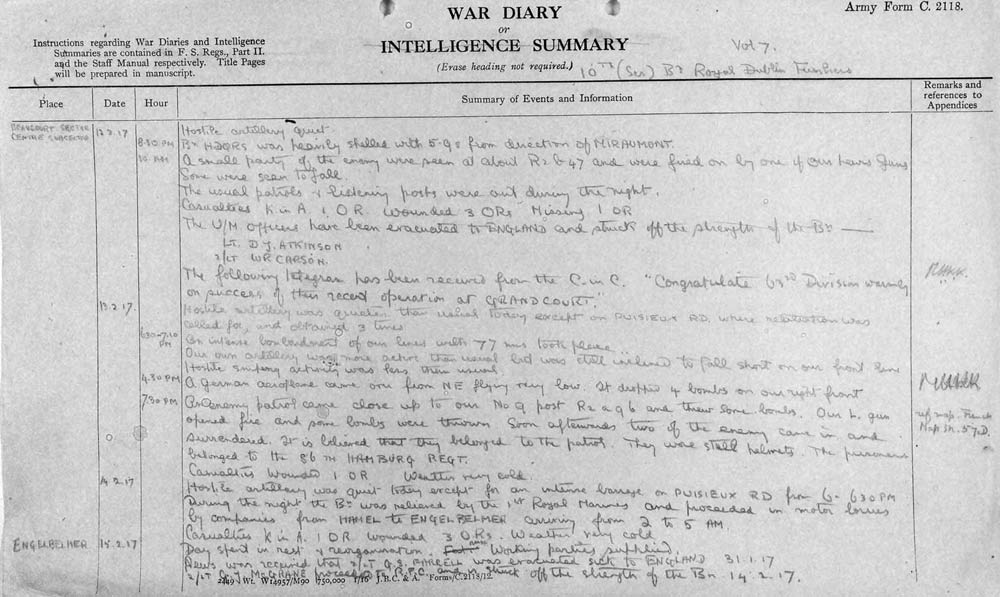 WAR DIARY
or
INTELLIGENCE SUMMARY
(Erase heading not required.)
Army Form C. 2118.
Instructions regarding War Diaries and Intelligence
Summaries are contained in F. S. Regs., Part II.
and the Staff Manual respectively. Title Pages
will be prepared in manuscript.
Vol 7.
10TH (Ser) Bn Royal Dublin Fusiliers
Place Date Hour Summary of Events and Information Remarks and references to Appendices
BEAUCOURT SECTOR 12.2.17 Hostile artillery quiet
CENTRE SUBSECTOR 8.30 PM Bn HDQRS was heavily shelled with 5.9s from direction of MIRAUMONT.
10 AM A small party of the enemy were seen at about R2 b 47 and were fired on by one of our Lewis Guns
Some were seen to fall.
The usual patrols & listening posts were out during the night.
Casualties K in A 1 OR Wounded 3 ORs Missing 1 OR
The U/M officers have been evacuated to ENGLAND and struck off the strength of the Bn
Lt. D J. ATKINSON
2/Lt W R CARSON.
The following telegram has been received from the C. in C. "Congratulate 63rd Division warmly
on success of their recent operation at GRANDCOURT."
13.2.17. Hostile artillery was quieter than usual today except on PUISIEUX RD. where retaliation was
called for, and obtained 3 times
6.30-7.10 PM An intense bombardment of our lines with 77 mms took place
Our own artillery was more active than usual but was still inclined to fall short on our front line
Hostile sniping activity was less than usual
4.30 PM A German aeroplane came over from NE flying very low. It dropped 4 bombs on our right front
7.30 PM An enemy patrol came close up to our No 9 post R2 a 96 and threw some bombs. Our L. gun
opened fire and some bombs were thrown Soon afterwards two of the enemy came in and
surrendered. It is believed that they belonged to the patrol. They wore steel helmets. The prisoners
belonged to the 86TH HAMBURG REGT.
ref map. French
Map Sh. 57.D.
Casualties Wounded 1 OR Weather very cold.
14.2.17 Hostile artillery was quiet today except for an intense barrage on PUISIEUX RD from 6-630 PM
During the night the Bn was relieved by the 1st Royal Marines and proceeded in motor lorries
by companies from HAMEL to ENGELBELMER arriving from 2 to 5 AM.
Casualties K in A. 1 OR wounded 3 ORs. Weather very cold.
ENGELBELMER 15.2.17 Day spent in rest & reorganisation. Working parties supplied.
News was received that 2/Lt G.S. was evacuated sick to ENGLAND 31.1.17
2/Lt McGRANE to R.F.C. and is struck off the strength of the Bn 14.2.17.
2449 Wt. W14957/M90 750,000 1/16 J.B.C. & A. Forms/C.2118/12.